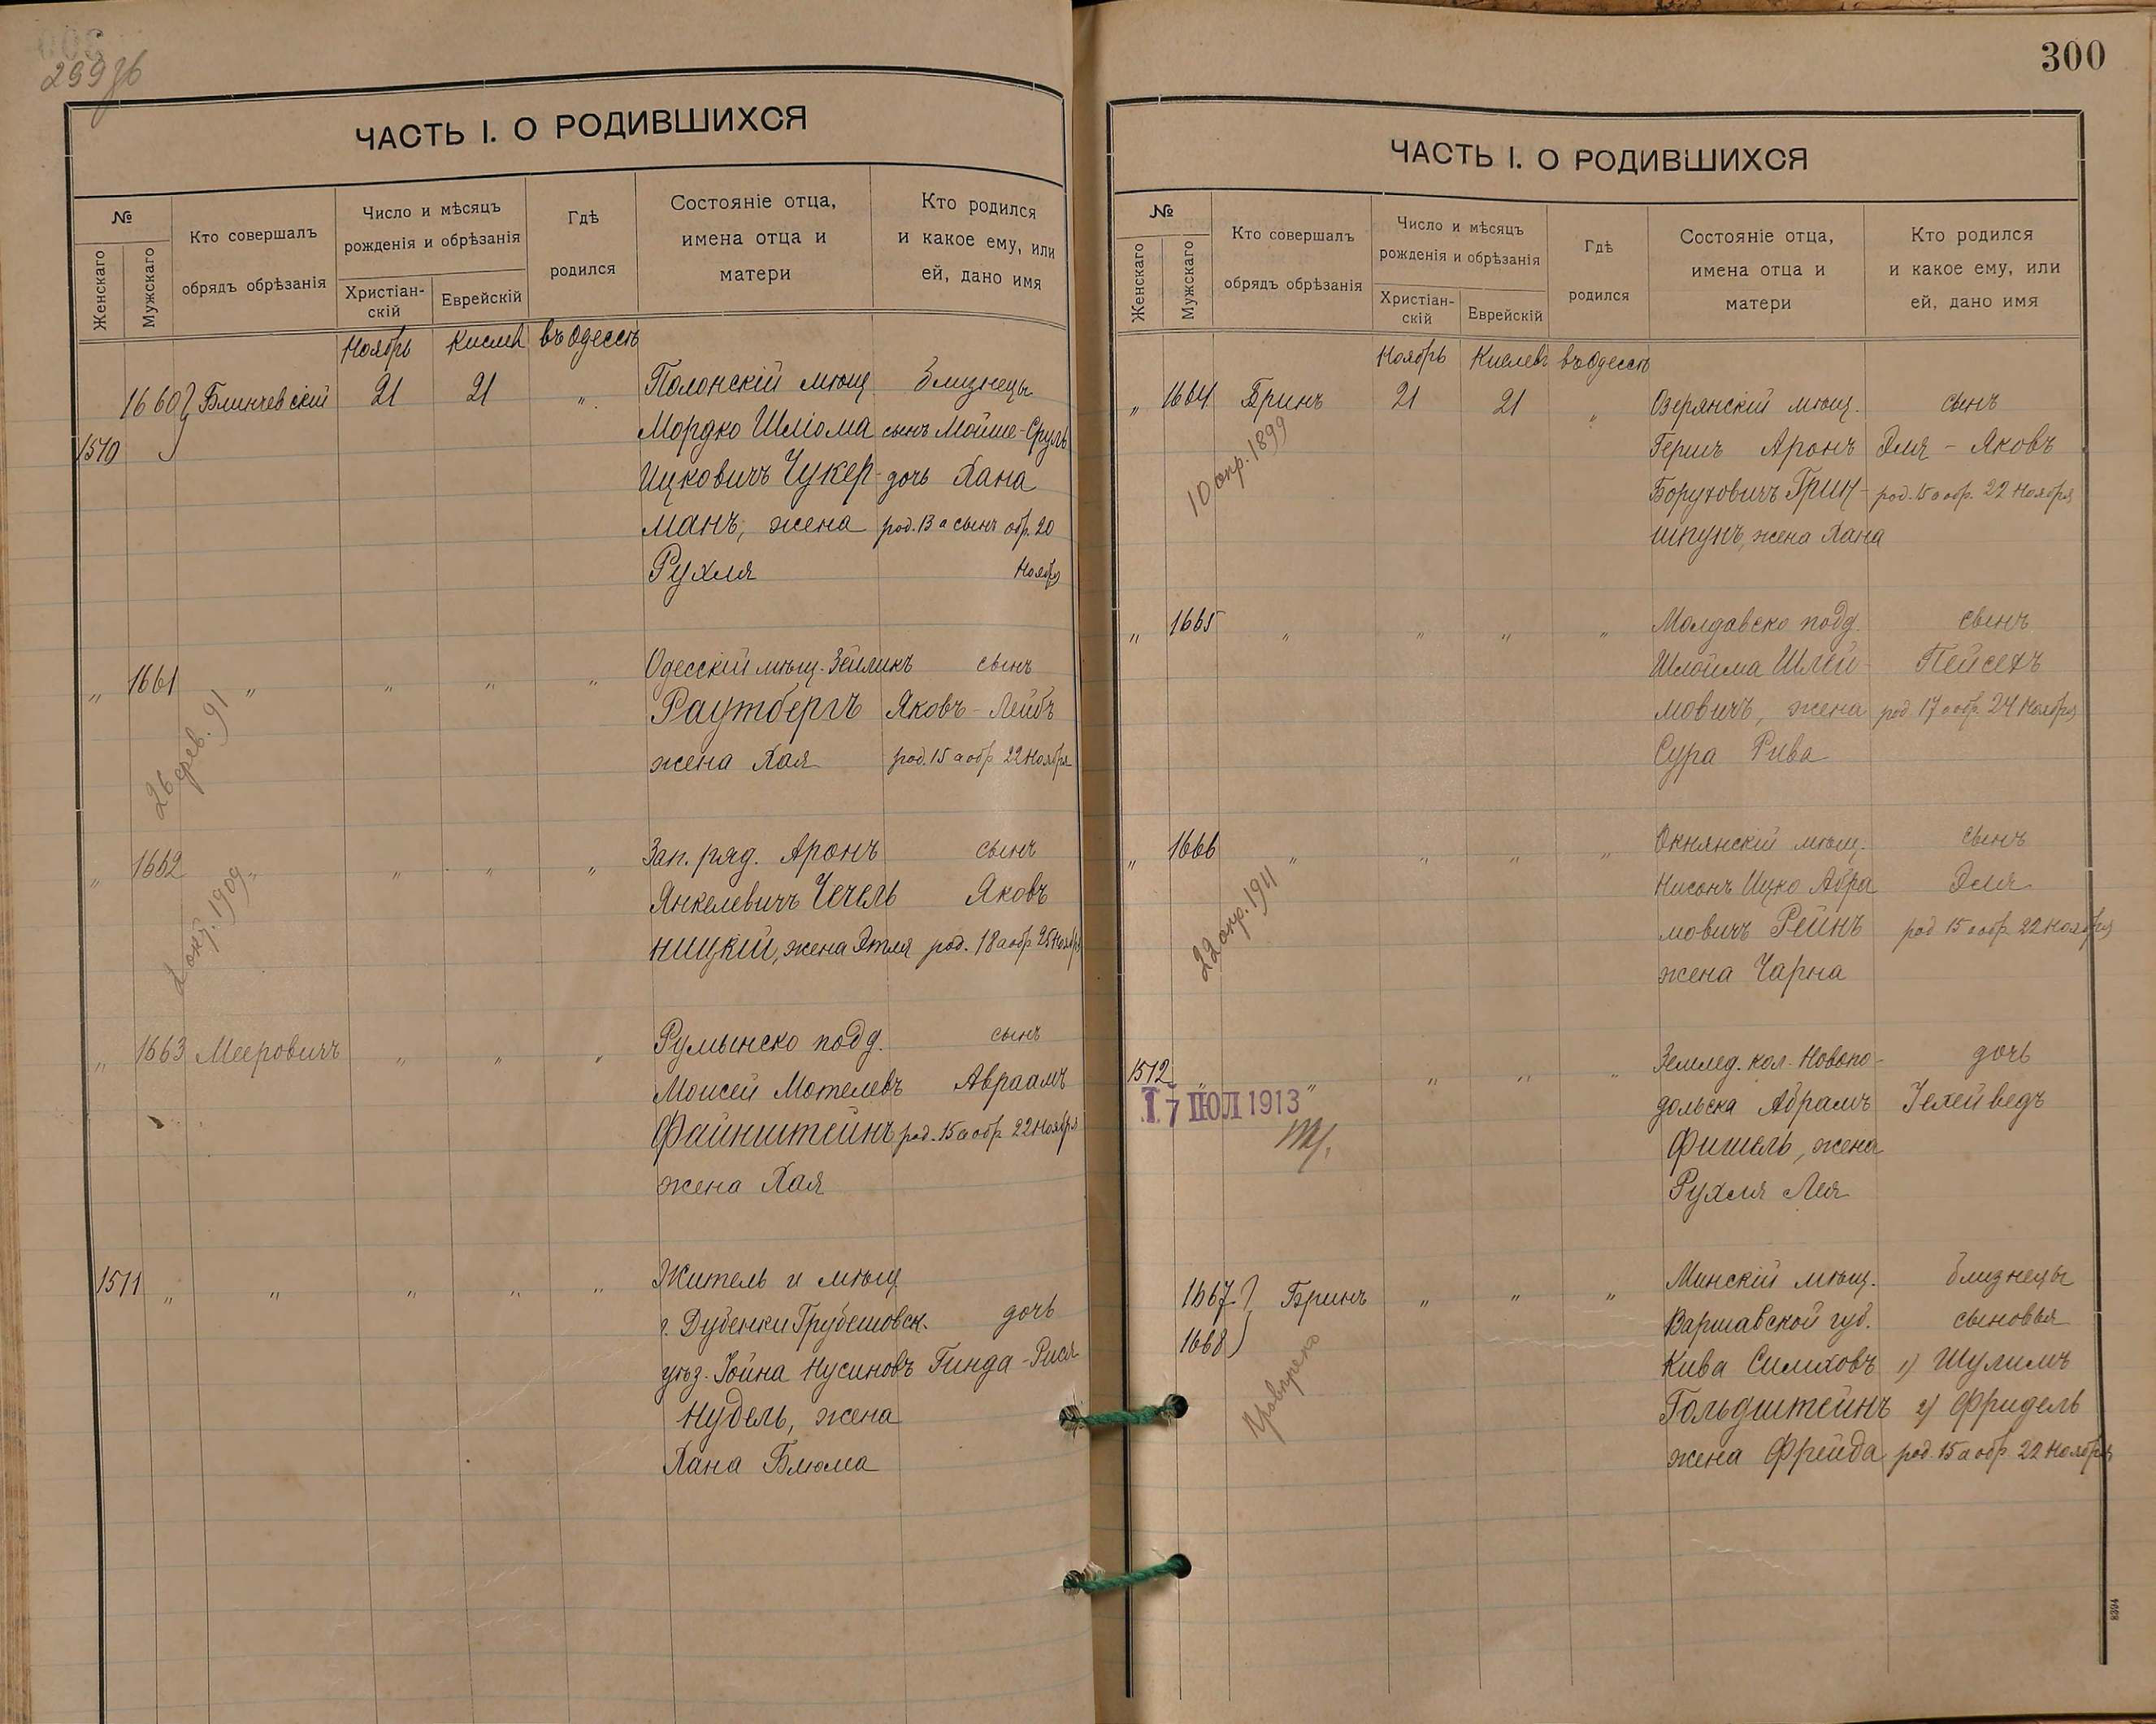 299 об
ЧАСТЬ I. О РОДИВШИХСЯ
№
Женскаго
Мужскаго
Кто совершалъ
обрядъ обрѣзанія
Число и мѣсяцъ
рожденія и обрѣзанія
Христіан-
скій
Еврейскій
Гдѣ
родился
Состояніе отца,
имена отца и
матери
Кто родился
и какое ему, или
ей, дано имя
Ноябрь Кислев въ Одессѣ
1660 Блинчевскій 21 21 " Полонскій мѣщ. близнецы
1570 Мордко Шліома сынъ Мойше-Сруль
Ицковичъ Чукер- дочь Хана
манъ, жена род. 13 а сынъ обр. 20
Рухля Ноября
" 1661 " " " " Одесскій мѣщ. Зейликъ сынъ
Раутбергъ Яковъ-Лейбъ
жена Хая род. 15 а обр. 22 Ноября
26 фев. 91
" 1662 " " " " Зап. ряд. Аронъ сынъ
Янкелевичъ Чечель Яковъ
ницкій, жена Этля род. 18 а обр. 25 Ноября
2 1909
" 1663 Мееровичъ " " " Румынско подд. сынъ
Моисей Мотелевъ Авраамъ
Файнштейнъ род. 15 а обр. 22 Ноября
жена Хая
1571 " " " " " Житель и мѣщ.
г. Дубенки Грубешовск. дочь
уѣз. Іойна Нусиновъ Гинда-Рися
Нудель, жена
Хана Блюма
300
ЧАСТЬ I. О РОДИВШИХСЯ
№
Женскаго
Мужскаго
Кто совершалъ
обрядъ обрѣзанія
Число и мѣсяцъ
рожденія и обрѣзанія
Христіан-
скій
Еврейскій
Гдѣ
родился
Состояніе отца,
имена отца и
матери
Кто родился
и какое ему, или
ей, дано имя
Ноябрь Кислевъ въ Одессѣ
" 1664 Бринъ 21 21 " Озерянскій мѣщ. сынъ
Гершъ Аронъ Эля - Яковъ
Боруховичъ Грин- род. 15 а обр. 22 Ноября
шпунъ, жена Хана
10 апр. 1899
" 1665 " " " " Молдавско подд. сынъ
Шлойма Шлей- Пейсехъ
мовичъ, жена род. 17 а обр. 24 Ноября
Сура Рива
" 1666 " " " " Окнянскій мѣщ. сынъ
Нисонъ Ицко Абра Эля
мовичъ Рейнъ род. 15 а обр. 22 Ноября
жена Чарна
22 апр. 1911
1572 " " " " " Землед. кол. Новопо- дочь
дольска Абрамъ
17 ІЮЛ 1913
Фишель, жена
Рухля Лея
1667 Бринъ " " " Минскій мѣщ. близнецы
1668 Варшавской губ. сыновья
Кива Симховъ 1) Шулимъ
Гольдштейнъ 2) Фридель
жена Фрейда род. 15 а обр. 22 Ноября
8394